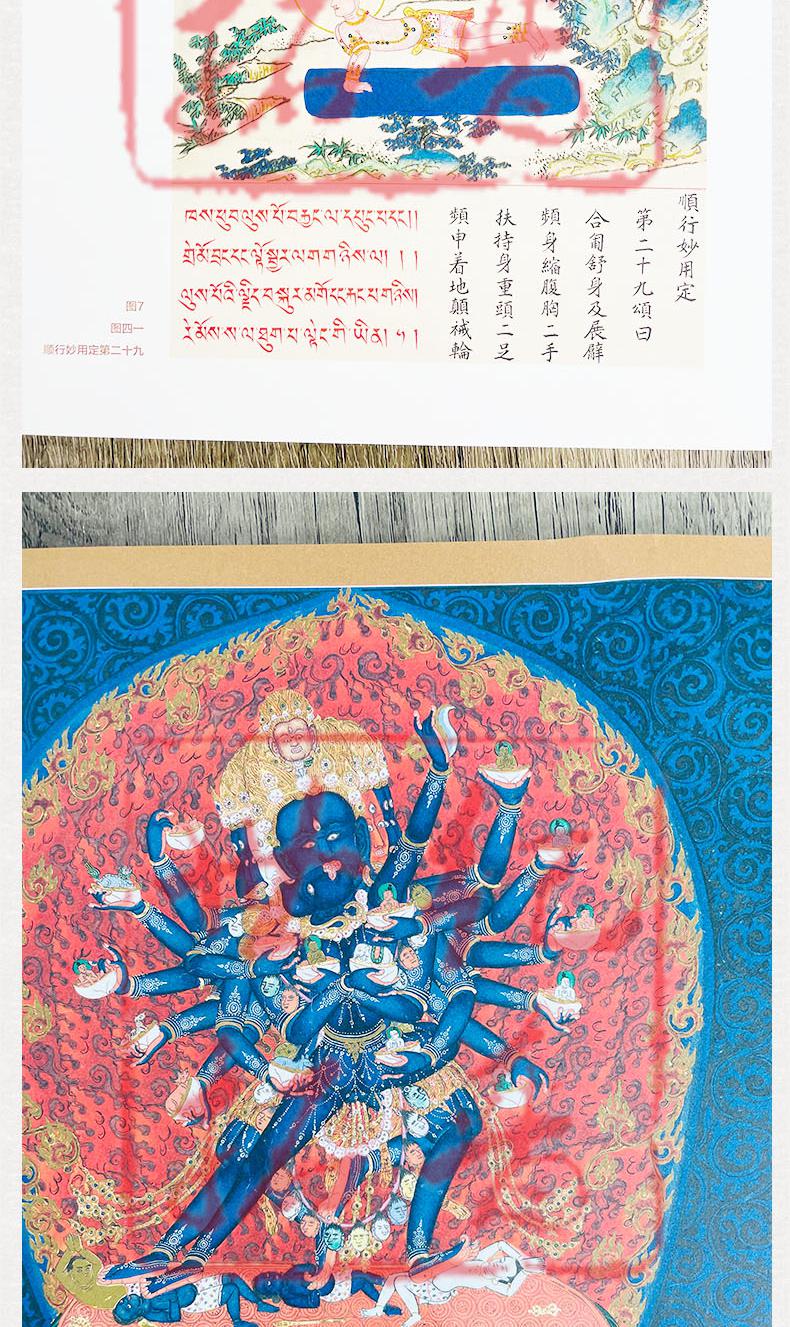 ཁས་ཕུབ་ལུས་པོ་བརྐྱང་ལ་དཔུང་པ་དང༌།།
གྲེ་མོ་བྲང་དང་ལྟོ་སྦྱར་ལག་གཉིས་ལ།། ། །
ལུས་པོའི་ལྗིད་བསྐུར་མགོ་དང་རྐང་པ་གཉིས།།
རེ་མོས་ས་ལ་ཐུག་པ་
順行妙用定
第二十九頌曰
合匍舒身及展臂
頻身縮腹胸二手
扶持身重頭二足
頻申着地顛械輪
图7
图四一
顺行妙用定第二十九